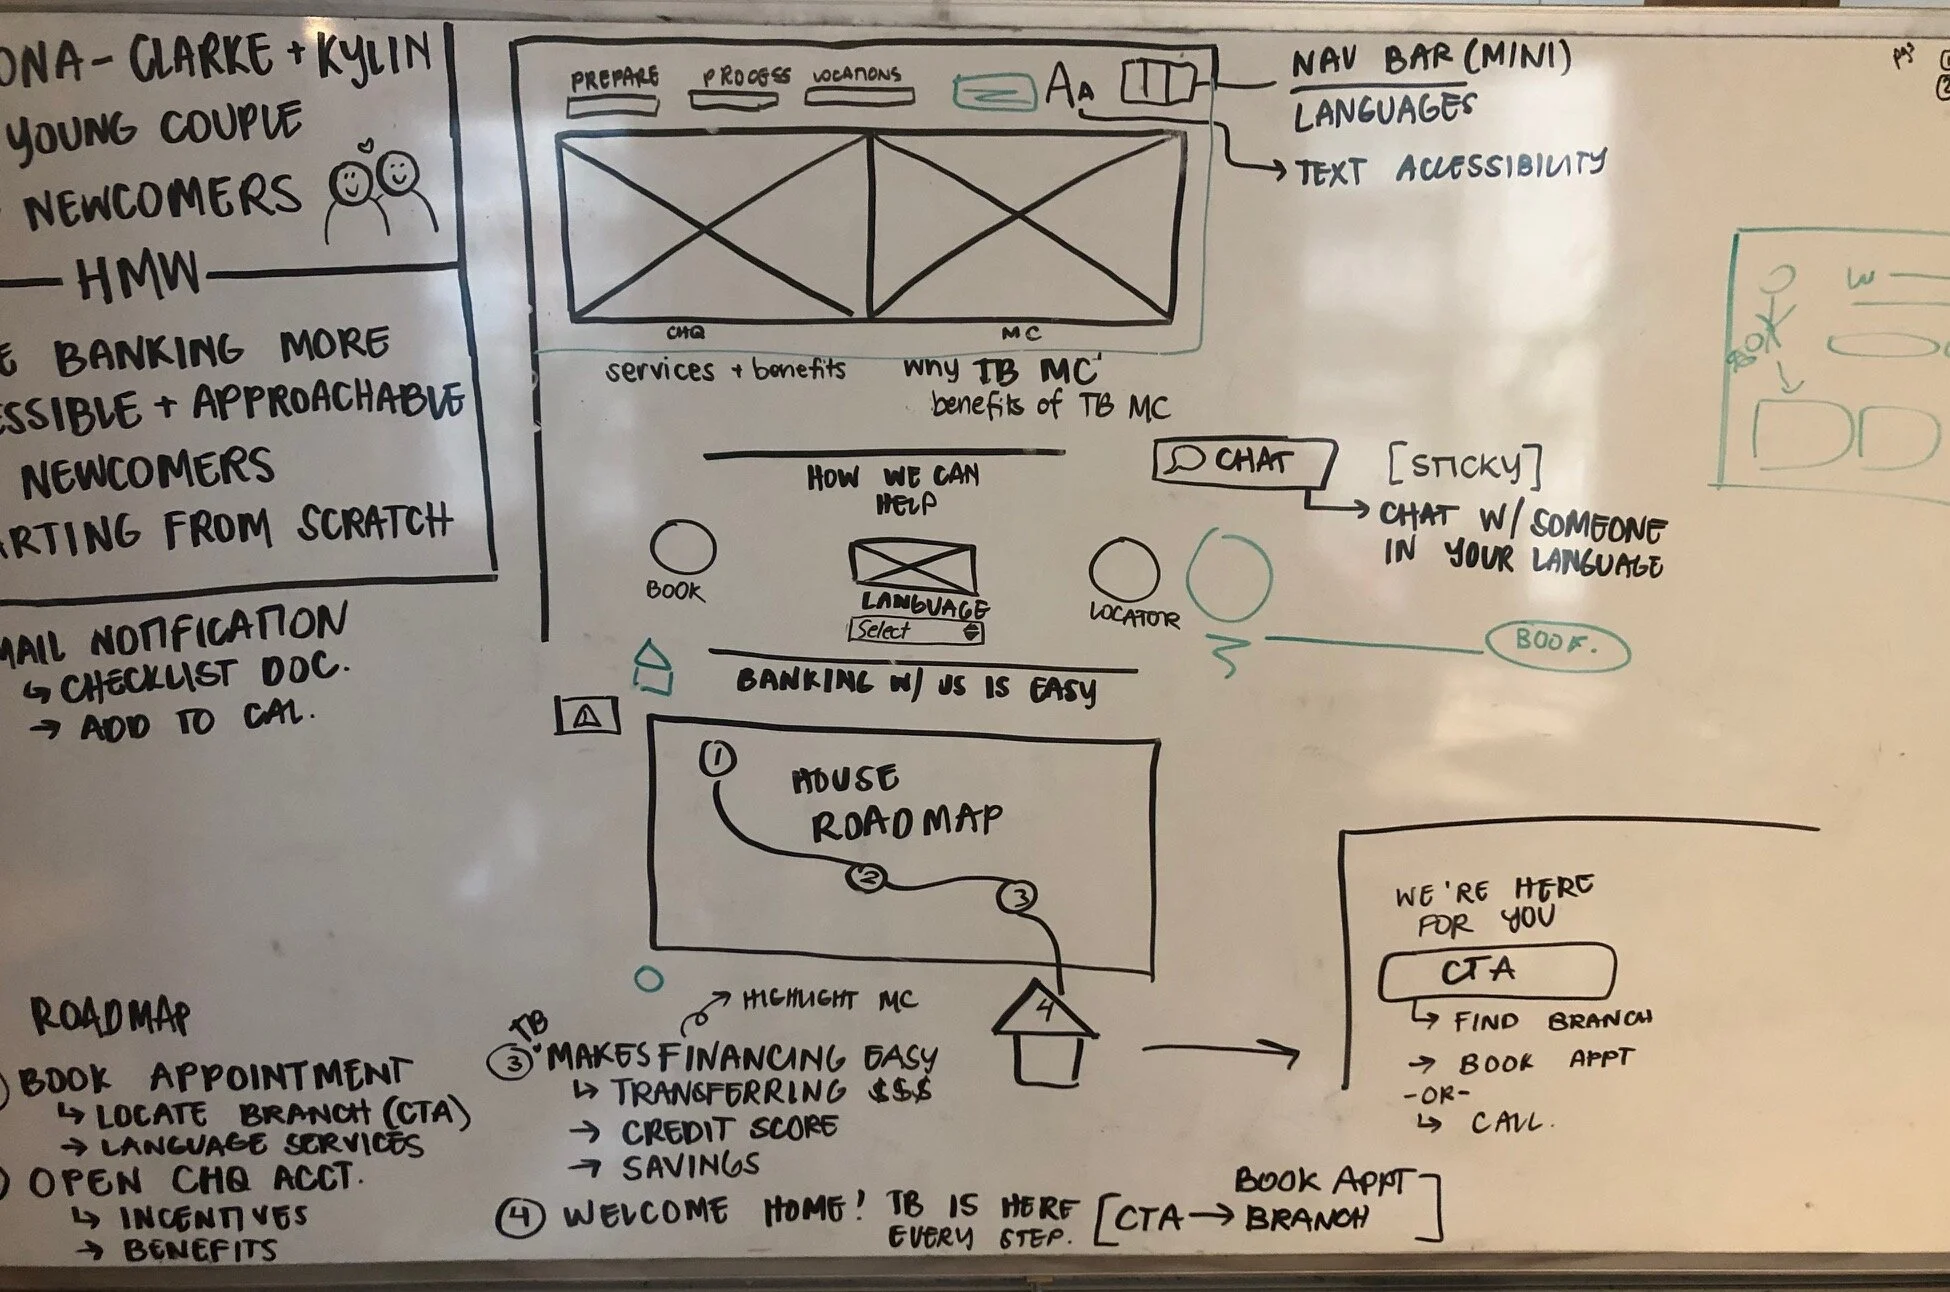 ONA - CLARKE + KYLIN
YOUNG COUPLE
NEWCOMERS
HMW
E BANKING MORE
ESSIBLE + APPROACHABLE
NEWCOMERS
ARTING FROM SCRATCH
MAIL NOTIFICATION
↳ CHECKLIST DOC.
→ ADD TO CAL.
ROADMAP
BOOK APPOINTMENT
↳ LOCATE BRANCH (CTA)
→ LANGUAGE SERVICES
OPEN CHQ ACCT.
↳ INCENTIVES
→ BENEFITS
PREPARE PROCESS LOCATIONS
AA
NAV BAR (MINI)
LANGUAGES
TEXT ACCESSIBILITY
CHQ MC
services + benefits
why TB MC
benefits of TB MC
HOW WE CAN
HELP
CHAT
[STICKY]
CHAT W/ SOMEONE
IN YOUR LANGUAGE
BOOK
LANGUAGE
Select
LOCATOR
BOOK.
BANKING W/ US IS EASY
1
HOUSE
ROADMAP
2
3
4
HIGHLIGHT MC
TB
③ MAKES FINANCING EASY
↳ TRANSFERRING $$$
→ CREDIT SCORE
→ SAVINGS
④ WELCOME HOME! TB IS HERE
EVERY STEP.
[CTA → BOOK APPT
BRANCH]
WE'RE HERE
FOR YOU
CTA
↳ FIND BRANCH
→ BOOK APPT
-OR-
↳ CALL.
W